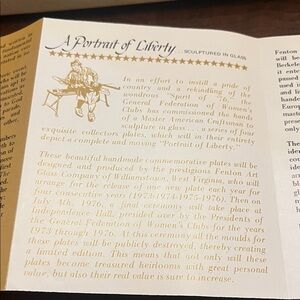 A Portrait of Liberty . . . SCULPTURED IN GLASS
In an effort to instill a pride of
country and a rekindling of the
wondrous "Spirit of '76", the
General Federation of Women's
Clubs has commissioned the hands
of a Master American Craftsman to
sculpture in glass . . . a series of four
exquisite collectors plates, which will in their entirety
depict a complete and moving "Portrait of Liberty."
These beautiful handmade commemorative plates will be
designed and produced by the prestigious Fenton Art
Glass Company of Williamstown, West Virginia, who will
arrange for the release of one new plate each year for
four consecutive years (1973-1974-1975-1976). Then on
July 4th, 1976, a final ceremony will take place at
Independence Hall, presided over by the Presidents of
the General Federation of Women's Clubs for the years
1973 through 1976. At this ceremony all the moulds for
these plates will be publicly destroyed, thereby creating
a limited edition. This means that not only will these
plates become treasured heirlooms with great personal
value, but also their real value is sure to increase.
Fenton
will be
Berkele
it ent
used
and
fini
hand
Euro
man